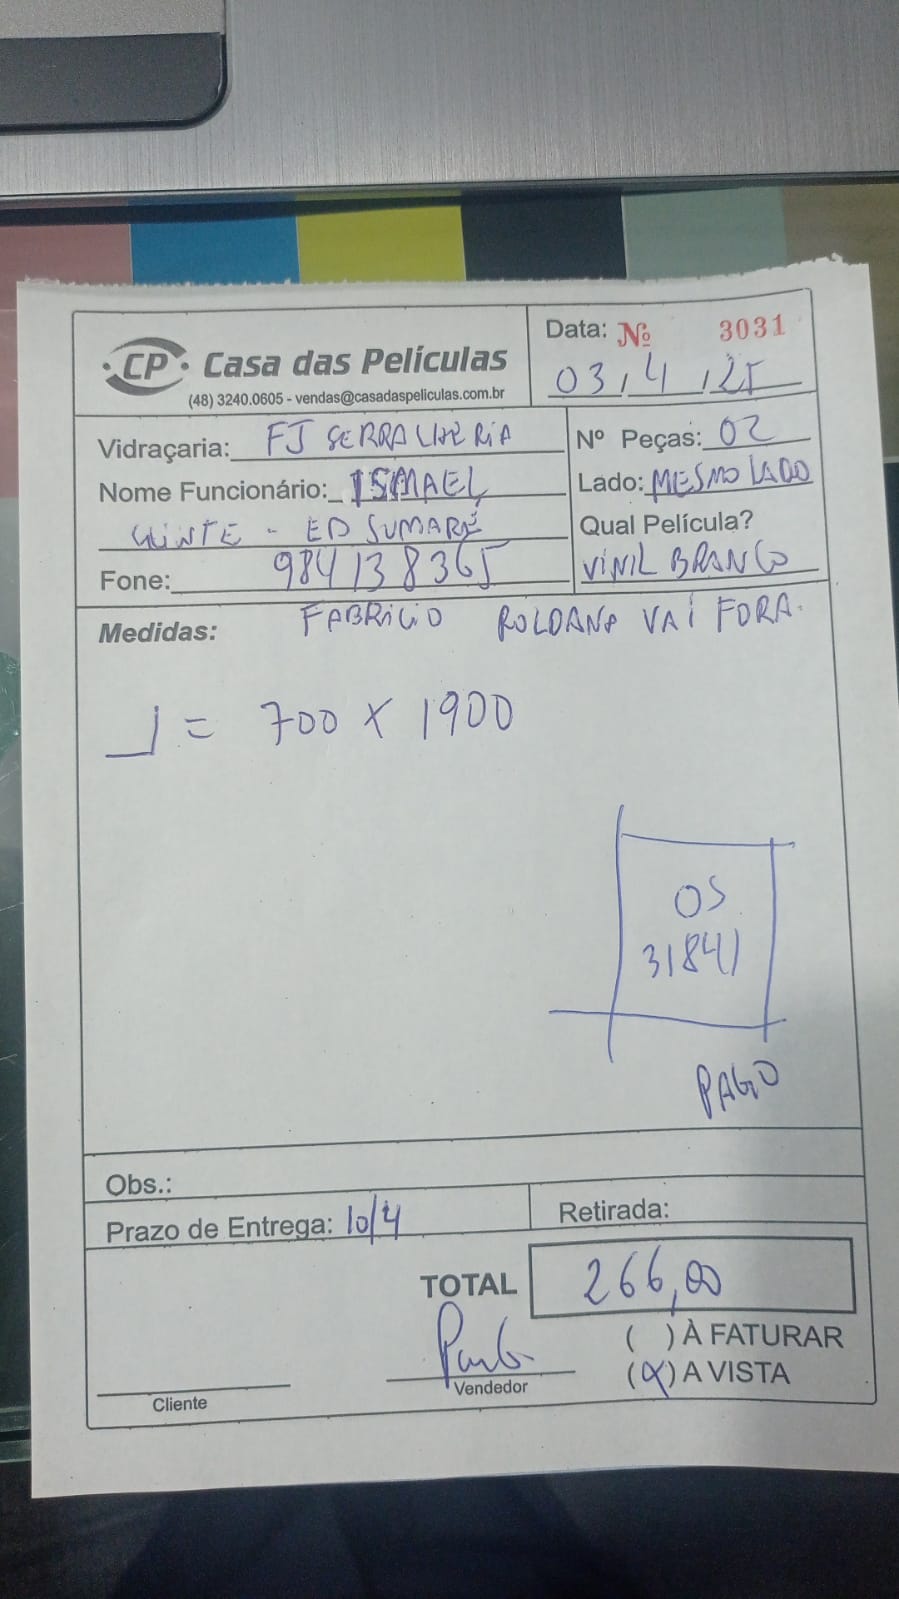 CP Casa das Películas
(48) 3240.0605 - vendas@casadaspeliculas.com.br
Data: Nº 3031
03, 4, 25
Vidraçaria: FJ SERRALHERIA
Nº Peças: 02
Nome Funcionário: ISMAEL
Lado: MESMO LADO
- ED SUMARÉ
Qual Película?
Fone: 984138365
VINIL BRANCO
Medidas: FABRICIO ROLDANA VAI FORA.
= 700 X 1900
OS
31841
PAGO
Obs.:
Prazo de Entrega: 10/4
Retirada:
TOTAL 266,00
( ) À FATURAR
(X) A VISTA
Vendedor
Cliente